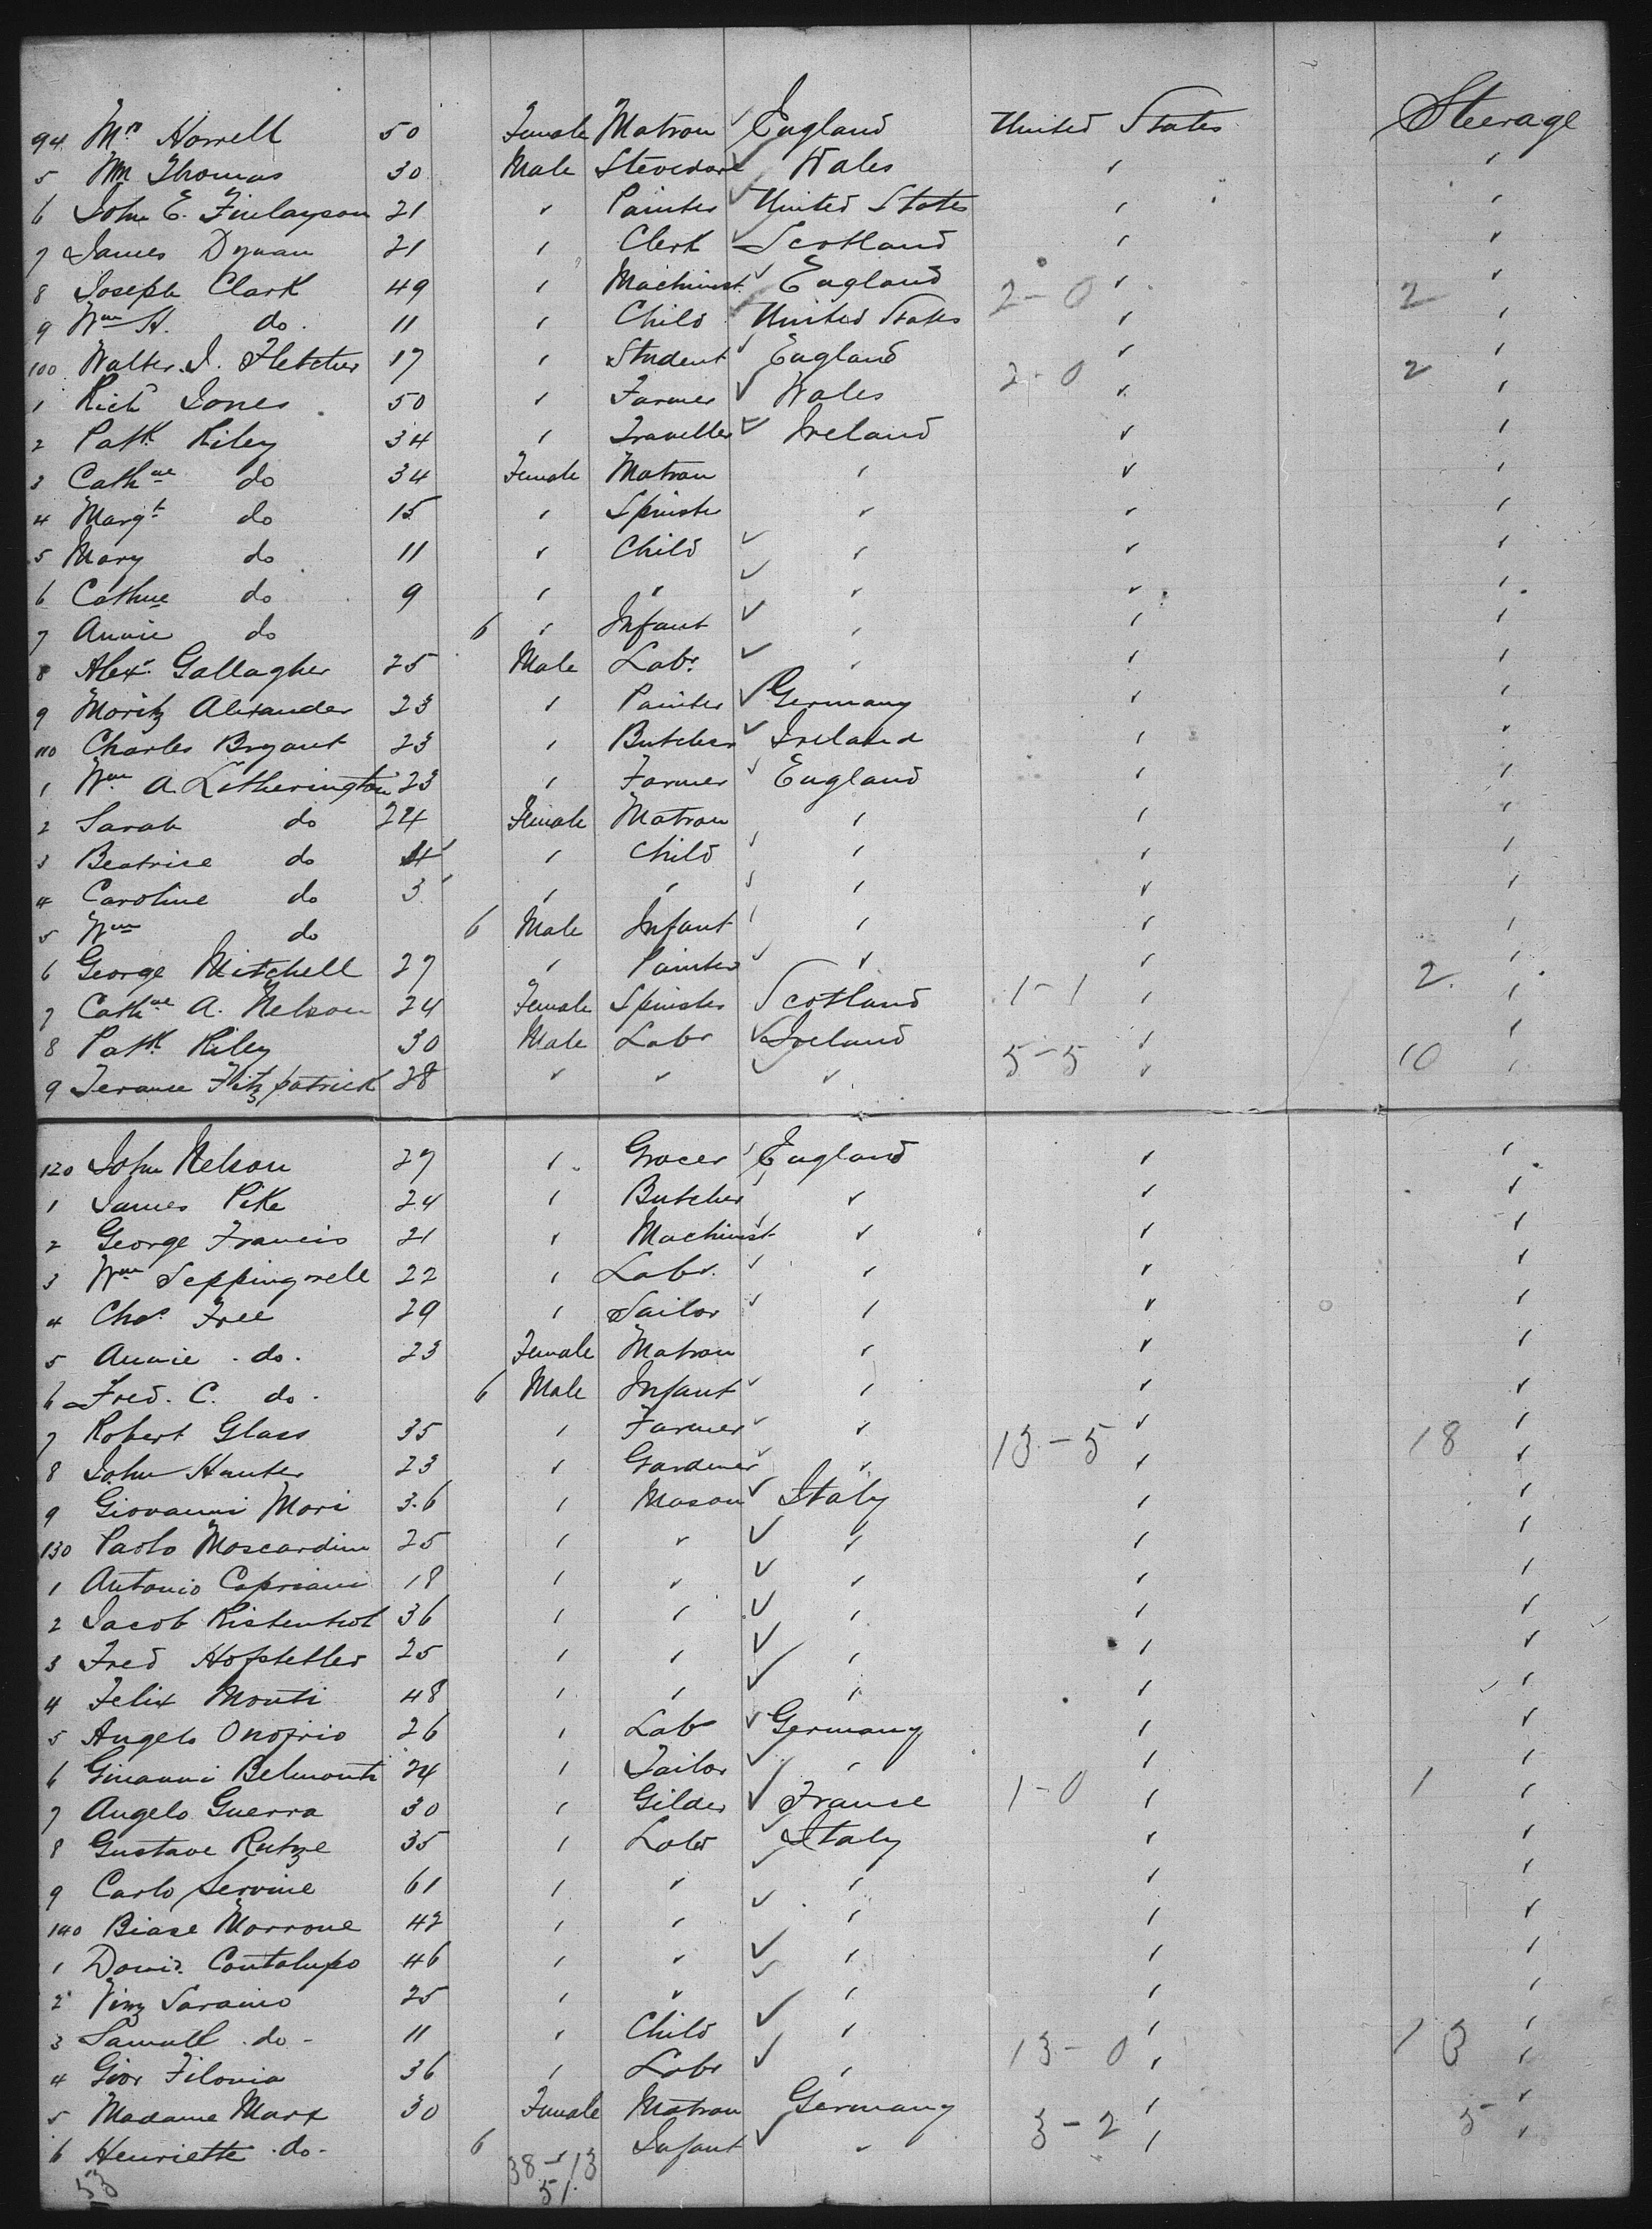 94 Mrs Horrell 50 Female Matron England United States Steerage
5 Wm Thomas 30 Male Stevedore Wales
6 John E. Finlayson 21 Painter United States
7 James Dynan 21 Clerk Scotland
8 Joseph Clark 49 Machinist England 2-0 2
9 Wm H. do. 11 Child United States
100 Walter J. Fletcher 17 Student England 2-0 2
1 Richd Jones 50 Farmer Wales
2 Patk Riley 34 Traveller Ireland
3 Cathne do 34 Female Matron
4 Margt do 15 Spinster
5 Mary do 11 Child
6 Cathne do 9
7 Annie do 6 Infant
8 Alexr Gallagher 25 Male Labr
9 Moritz Alexander 23 Painter Germany
110 Charles Bryant 23 Butcher Ireland
1 Wm A. Letherington 23 Farmer England
2 Sarah do 24 Female Matron
3 Beatrice do 4 Child
4 Caroline do 3
5 Wm do 6 Male Infant
6 George Mitchell 27 Painter
7 Cathne A. Nelson 24 Female Spinster Scotland 1-1 2
8 Patk Riley 30 Male Labr Ireland 5-5 10
9 Terance Fitzpatrick 28
120 John Nelson 27 Grocer England
1 James Pike 24 Butcher
2 George Francis 21 Machinist
3 Wm Seppingwell 22 Labr.
4 Chas Free 29 Sailor
5 Annie do. 23 Female Matron
6 Fred. C. do. 6 Male Infant
7 Robert Glass 35 Farmer 13-5 18
8 John Hunter 23 Gardener
9 Giovanni Mori 36 Mason Italy
130 Paolo Moscardini 25
1 Antonio Capriani 18
2 Jacob 36
3 Fred Hofstetler 25
4 Felix Monti 48
5 Angelo Onofrio 26 Labr Germany
6 Ginanni Belmonti 24 Tailor
7 Angelo Guerra 30 Gilder France 1-0 1
8 Gustave Rutze 35 Labr Italy
9 Carlo Servine 61
140 Biase Morrone 42
1 David. Cantalupo 46
2 Vinz Saraino 25
3 Samull do - 11 Child 13-0 13
4 Gior Filonia 36 Labr
5 Madame Marx 30 Female Matron Germany 3-2 5
6 Henriette do- 6 Infant
53 38-13
51